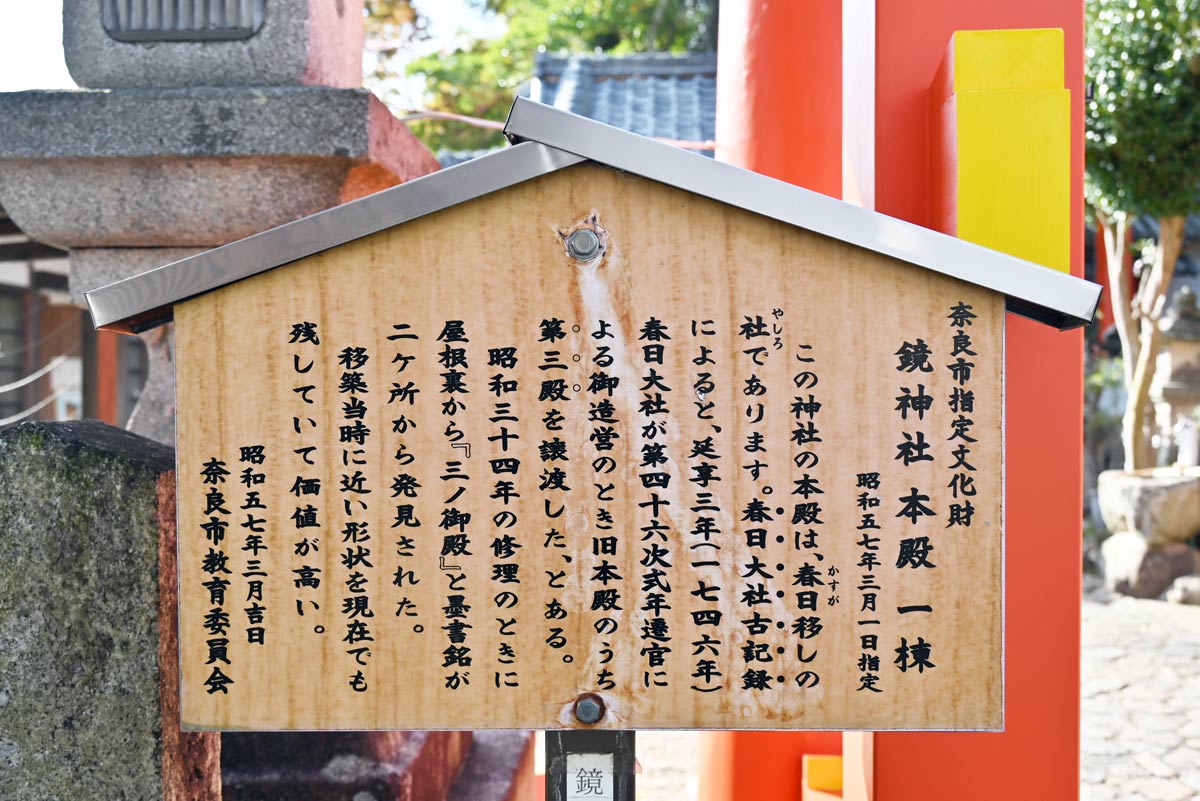 奈良市指定文化財
鏡神社本殿 一棟
昭和五七年三月一日指定
この神社の本殿は、春日移しの
かすが
社であります。春日大社古記録
やしろ
によると、延享三年(一七四六年)
春日大社が第四十六次式年遷官に
よる御造営のとき旧本殿のうち
第三殿を譲渡した、とある。
昭和三十四年の修理のときに
屋根裏から『三ノ御殿』と墨書銘が
二ヶ所から発見された。
移築当時に近い形状を現在でも
残していて価値が高い。
昭和五七年三月吉日
奈良市教育委員会
鏡